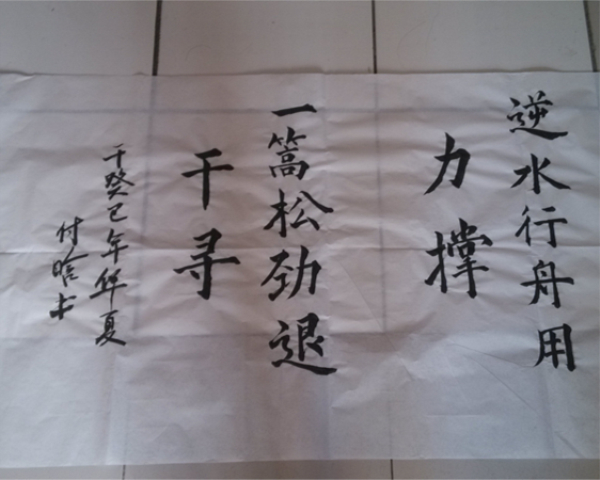 逆水行舟用
力撑
一篙松劲退
千寻
于癸巳年华夏
付